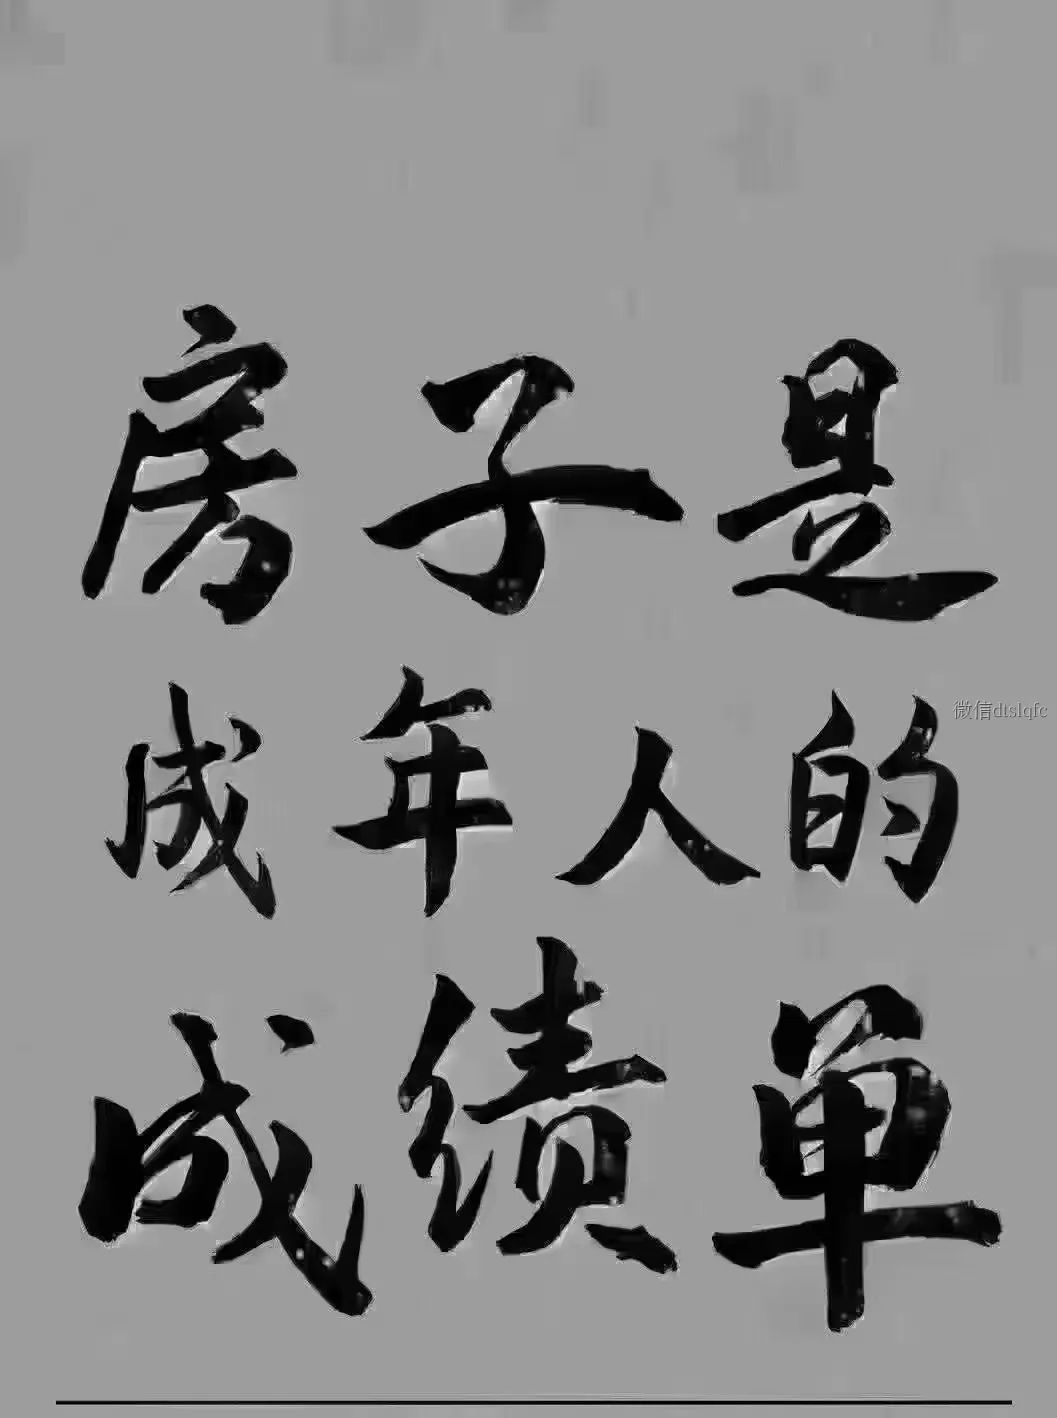 房子是
成年人的
微信dtslqfc
成绩单